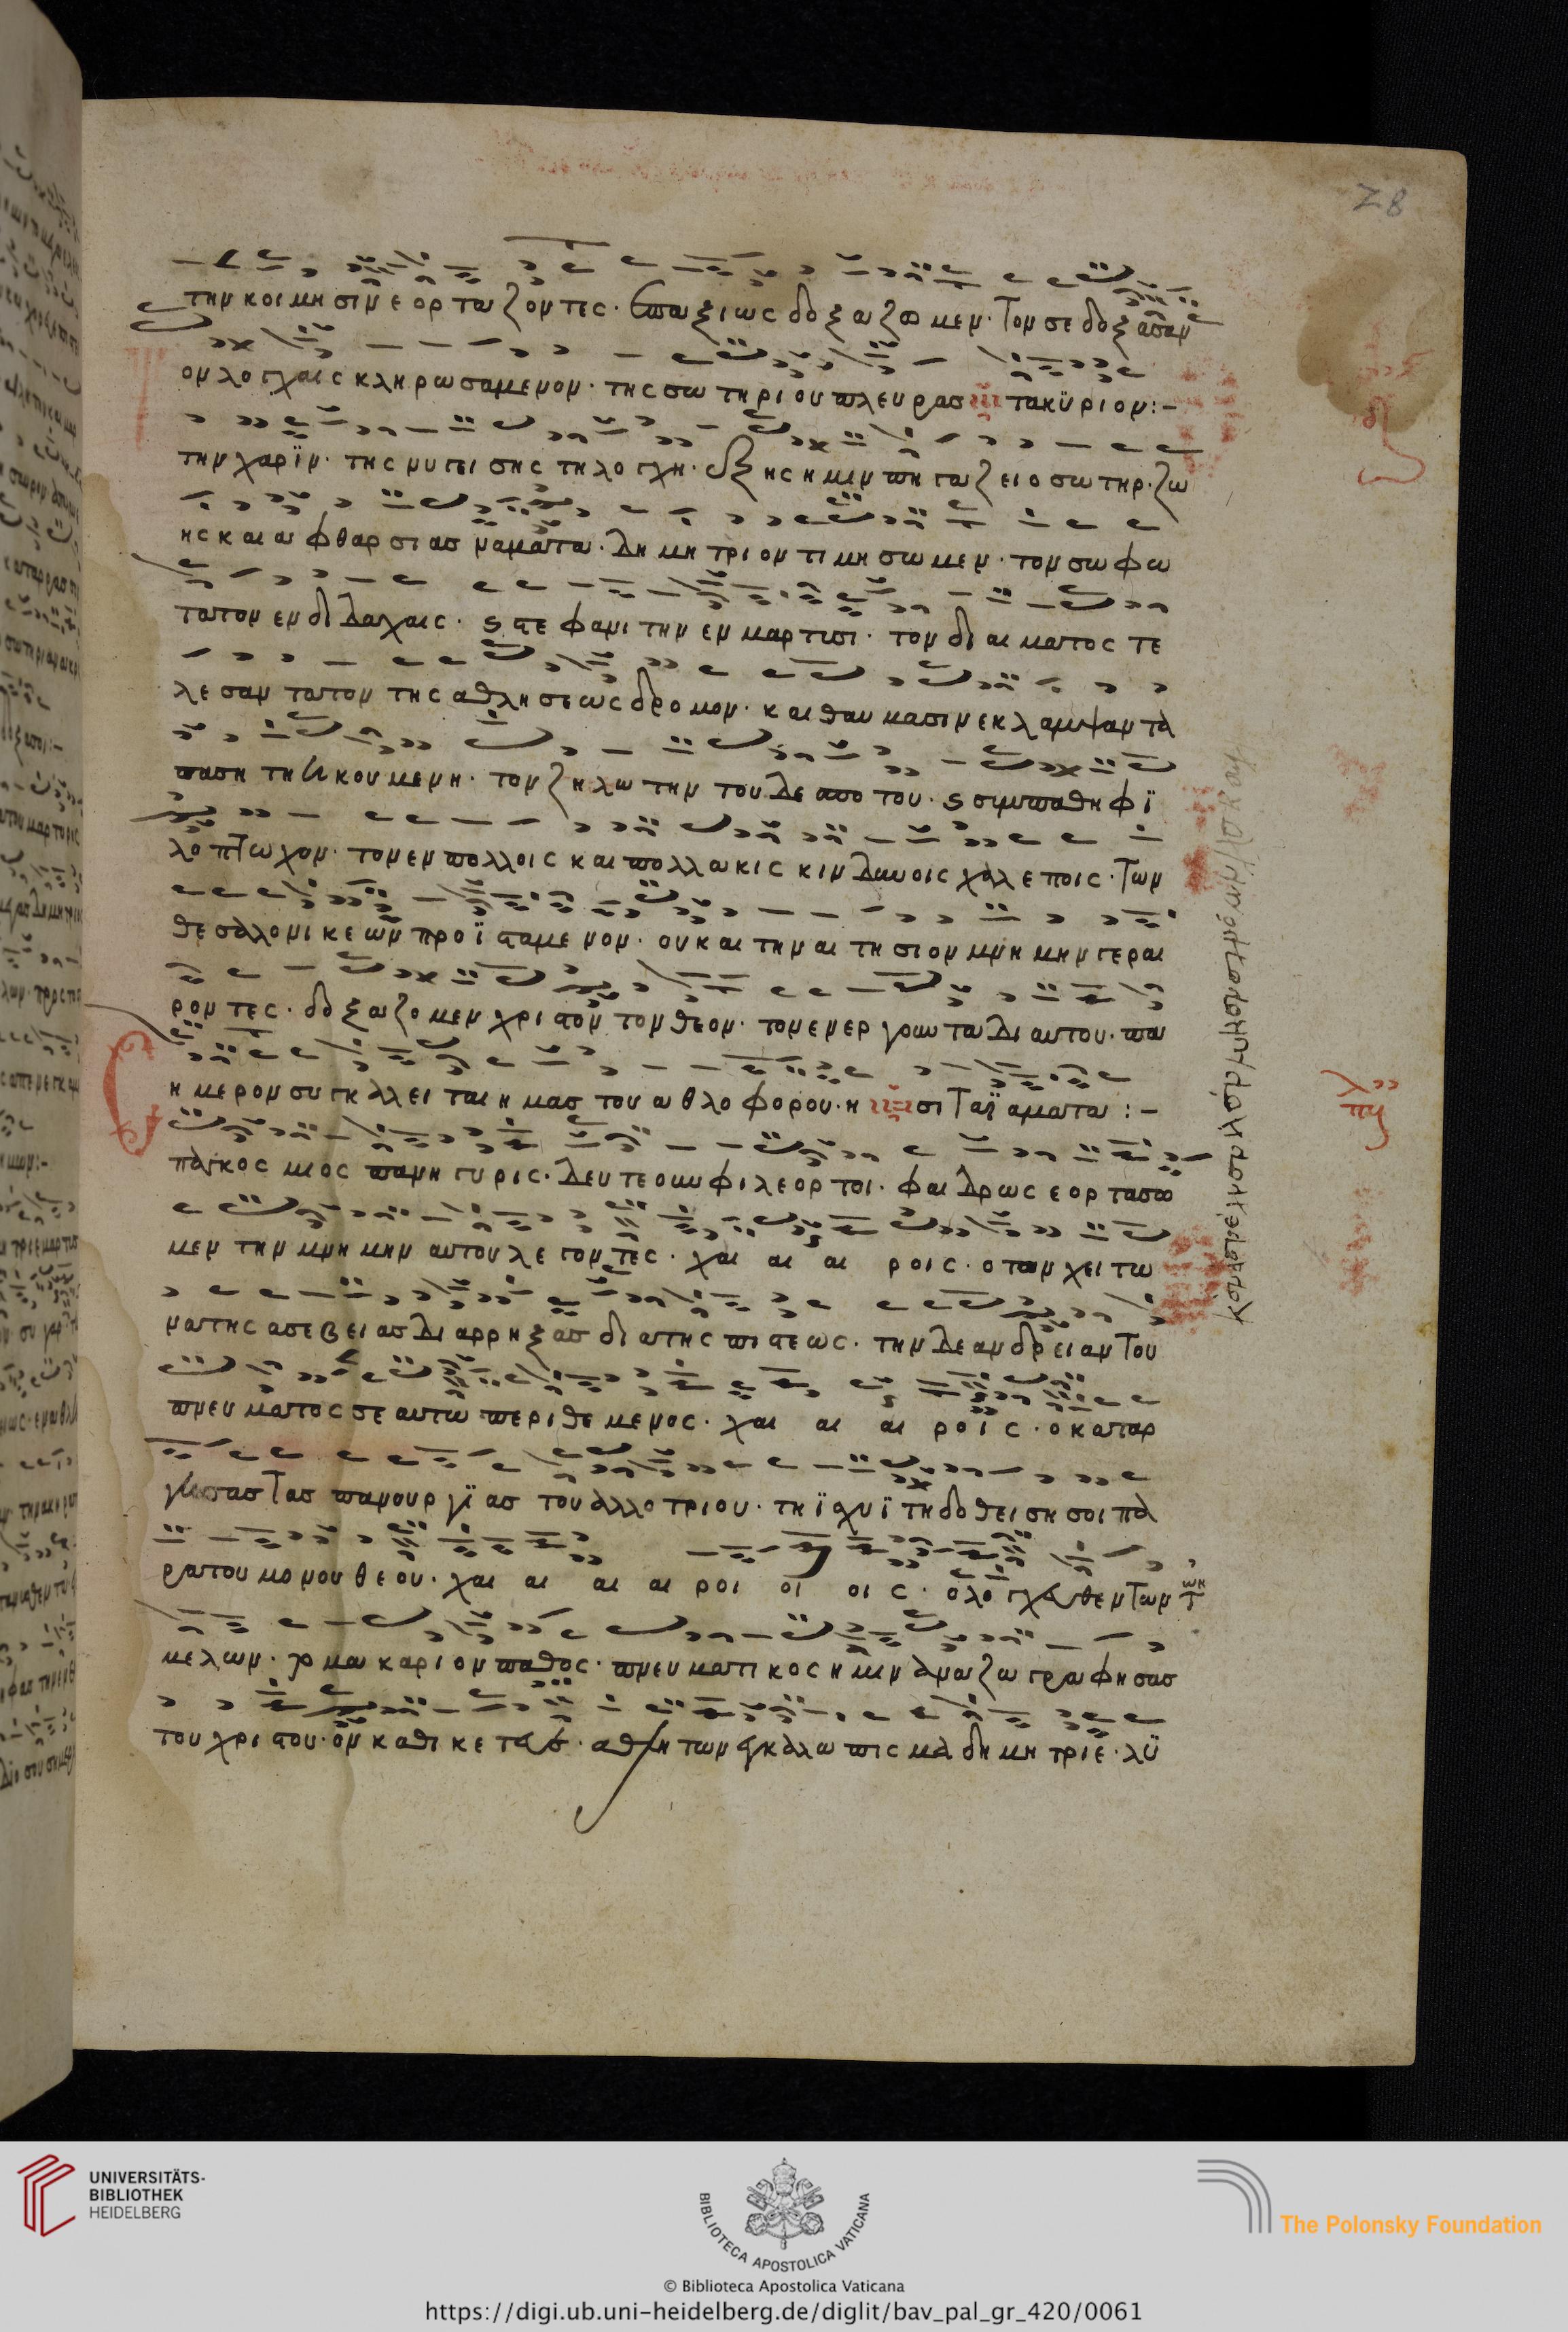 28
την κοιμησιν εορταζοντες· επαξιως δοξαζωμεν· τον σε δοξασαν
ον λογχαις κληρωσαμενον· της σωτηριου πλευρασ τα κϋριον :-
την χαρϊν· της νυγεισης τη λογχη· εξ ης ημιν πηγαζει ο σωτηρ· ζω
ης και αφθαρσιας ναματα· δημητριον τιμησωμεν· τον σοφω
τατον εν διδαχαις· ϛ στεφανιτην εν μαρτυσι· τον δι αιματος τε
λεσαντα τον της αθλησεως δρομον· και θαυμασιν εκλαμψαντα
παση τη οικουμενη· τον ζηλωτην του δεσποτου· ϛ συμπαθη φϊ
λοπτωχον· τον εν πολλοις και πολλακις κινδυνοις χαλεποις· των
θεσαλονικεων προϊσταμενον· ου και την αιτησιον μνημην γεραι
ροντες· δοξαζομεν χριστον τον θεον· τον ενεργουντα δι αυτου· πα
ημερον συγκαλειται ημας του αθλοφορου· η σι τα ϊαματα :-
παγκοσμιος πανηγυρις· δευτε ουν φιλεορτοι· φαιδρως εορτασω
μεν την μνημην αυτου λεγοντες· χαι αι αι ροις· ο τον χιτω
να της ασεβειας διαρρηξας δια της πιστεως· την δε ανδρειαν του
πνευματος σεαυτω περιθεμενος· χαι αι αι ροϊς· ο καταρ
γησας τας πανουργϊας του αλλοτριου· τη ϊσχυϊ τη δοθειση σοι πα
ρα του μονου θεου· χαι αι αι αι ροι οι οις· ο λογχευθεντων των
μελων· το μακαριον παθος· πνευματικος ημιν αναζωγραφησας
του χριστου· ον καθικετευε· αθλητων εγκαλωπισμα δημητριε· λϋ
UNIVERSITÄTS-
BIBLIOTHEK
HEIDELBERG
BIBLIOTECA APOSTOLICA VATICANA
The Polonsky Foundation
© Biblioteca Apostolica Vaticana
https://digi.ub.uni-heidelberg.de/diglit/bav_pal_gr_420/0061